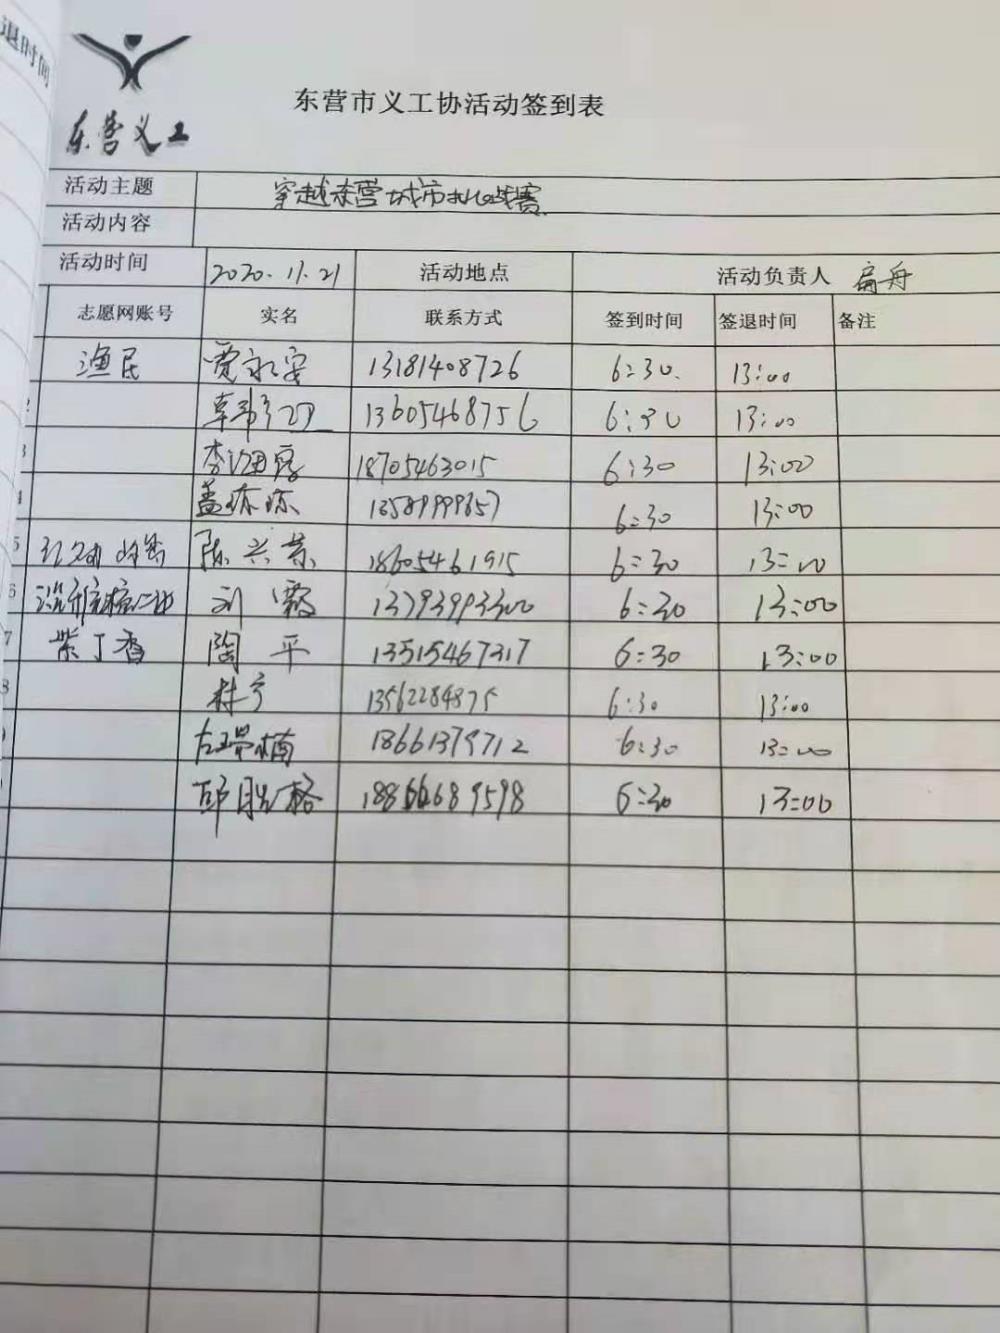 退时间
东营义工
东营市义工协活动签到表
活动主题 穿越东营城市挑战赛
活动内容
活动时间 2020.11.21 活动地点 活动负责人 扁舟
志愿网账号 实名 联系方式 签到时间 签退时间 备注
渔民 贾永安 13181408726 6:30 13:00
2 13605468756 6:30 13:00
3 李海霞 18705463015 6:30 13:00
4 盖琼琼 13589999857 6:30 13:00
5 陈兴荣 18605461915 6:30 13:00
6 刘霞 13793993300 6:30 13:00
7 紫丁香 陶平 13515467317 6:30 13:00
8 林宁 13562284875 6:30 13:00
18661379712 6:30 13:00
格 18866689598 6:30 13:00